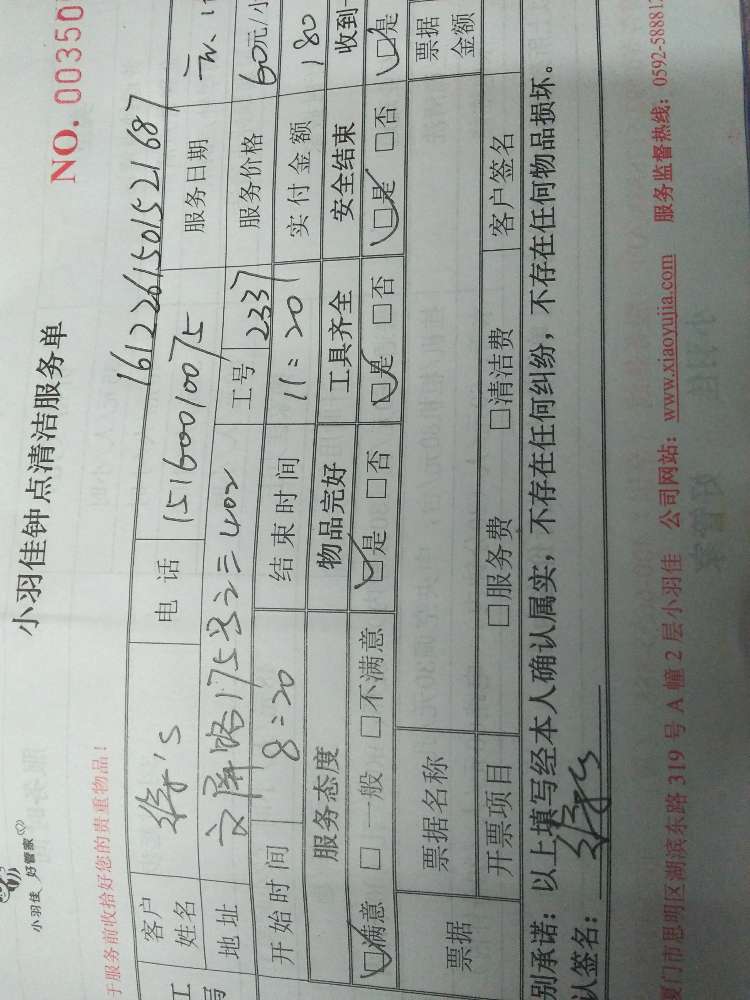 小羽佳 好管家
小羽佳钟点清洁服务单
NO. 00350
于服务前收拾好您的贵重物品!
1612261501521687
客户姓名 电话 15160010075 服务日期
地址 文屏路175号之三402 工号 2337 服务价格 60元/小
开始时间 8:20 结束时间 11:20 实付金额 180
服务态度 物品完好 工具齐全 安全结束 收到
□满意 □一般 □不满意 □是 □否 □是 □否 □是 □否 □是
票据 票据名称 票据金额
开票项目 □服务费 □清洁费 客户签名
别承诺:以上填写经本人确认属实,不存在任何纠纷,不存在任何物品损坏。
认签名:
厦门市思明区湖滨东路 319 号 A 幢 2 层小羽佳 公司网站:www.xiaoyujia.com 服务监督热线:0592-58881